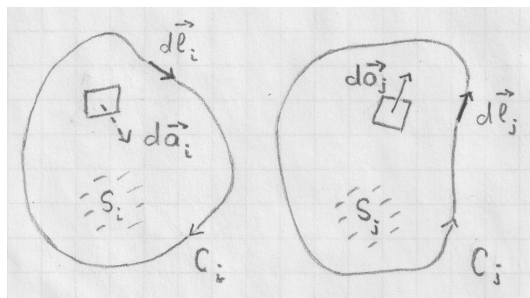 dl⃗ᵢ
da⃗ᵢ
Sᵢ
Cᵢ
da⃗ⱼ
dl⃗ⱼ
Sⱼ
Cⱼ